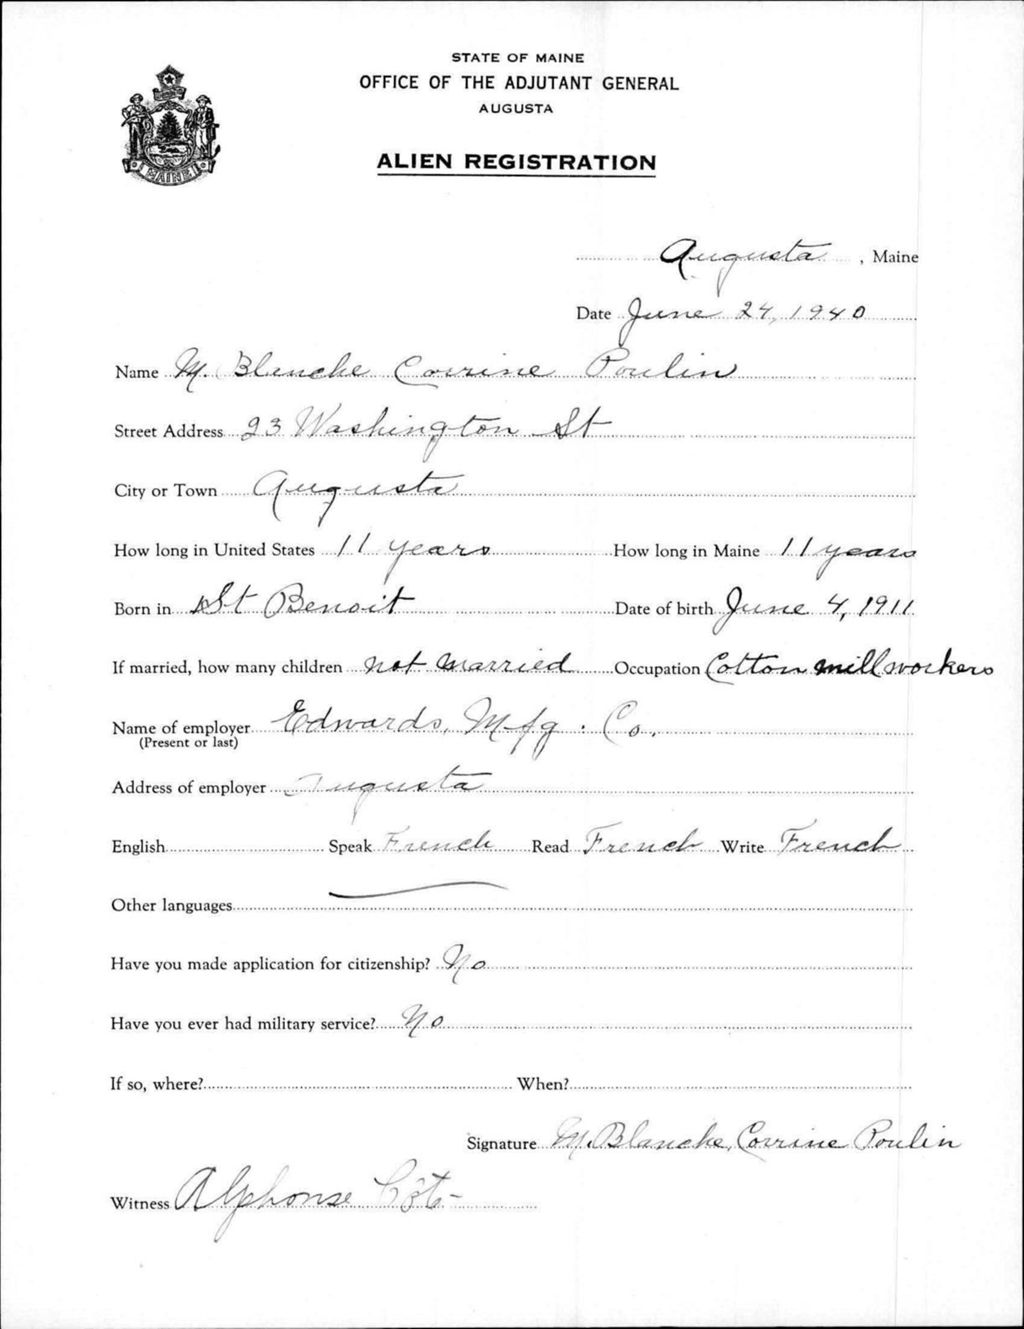 STATE OF MAINE
OFFICE OF THE ADJUTANT GENERAL
AUGUSTA
ALIEN REGISTRATION
MAINE
Augusta, Maine
Date June 24, 1940
Name M. Blanche Corrine Poulin
Street Address 23 Washington St
City or Town Augusta
How long in United States 11 years How long in Maine 11 years
Born in St Benoit Date of birth June 4, 1911
If married, how many children not married Occupation Cotton mill workers
Name of employer Edwards, Mfg. Co.
(Present or last)
Address of employer Augusta
English Speak French Read French Write French
Other languages
Have you made application for citizenship? No
Have you ever had military service? No
If so, where? When?
Signature M. Blanche, Corrine Poulin
Witness Alphonse Côté